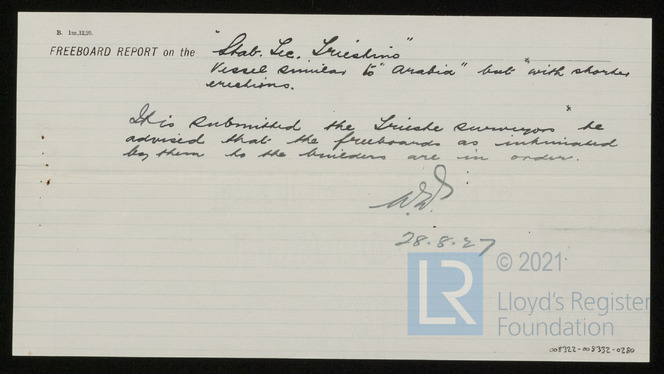 B. 1m,12,26.
FREEBOARD REPORT on the "Stab. Tec. Triestino"
Vessel similar to "Arabia" but with shorter
erections.
It is submitted the Trieste surveyors be
advised that the freeboards as intimated
by them to the builders are in order.
28.8.27
LR
© 2021
Lloyd's Register
Foundation
008322-008332-0280